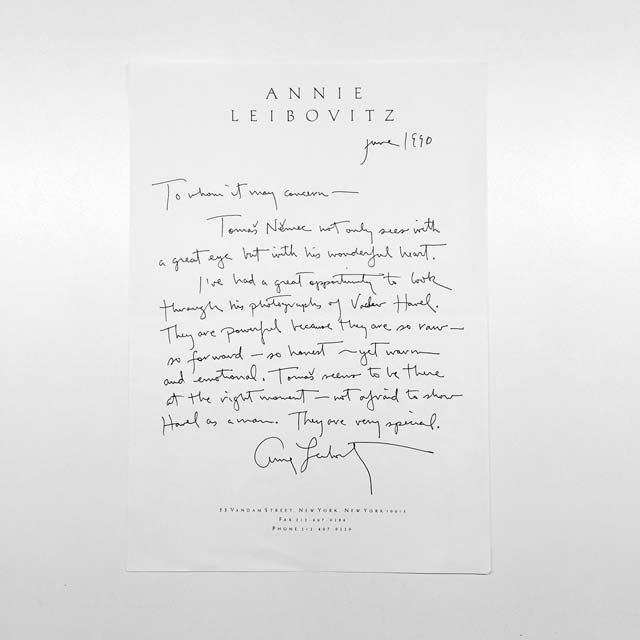 ANNIE
LEIBOVITZ
june 1990
To whom it may concern —
Tomaš Němec not only sees with
a great eye but with his wonderful heart.
I've had a great opportunity to look
through his photographs of Vaclav Havel.
They are powerful because they are so raw —
so forward — so honest — yet warm
and emotional. Tomaš seems to be there
at the right moment — not afraid to show
Havel as a man. They are very special.
Annie Leibovitz
55 VANDAM STREET, NEW YORK, NEW YORK 10013
FAX 212-807-0286
PHONE 212-807-0220